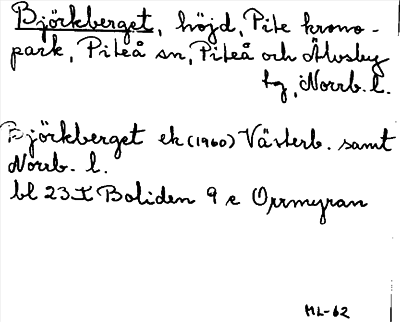 Björkberget, höjd, Pite krono-
park, Piteå sn, Piteå och Älvsby
tg, Norrb. l.
Björkberget ek (1960) Västerb. samt
Norrb. l.
bl 23 I Boliden 9 e Orrmyran
ML-62